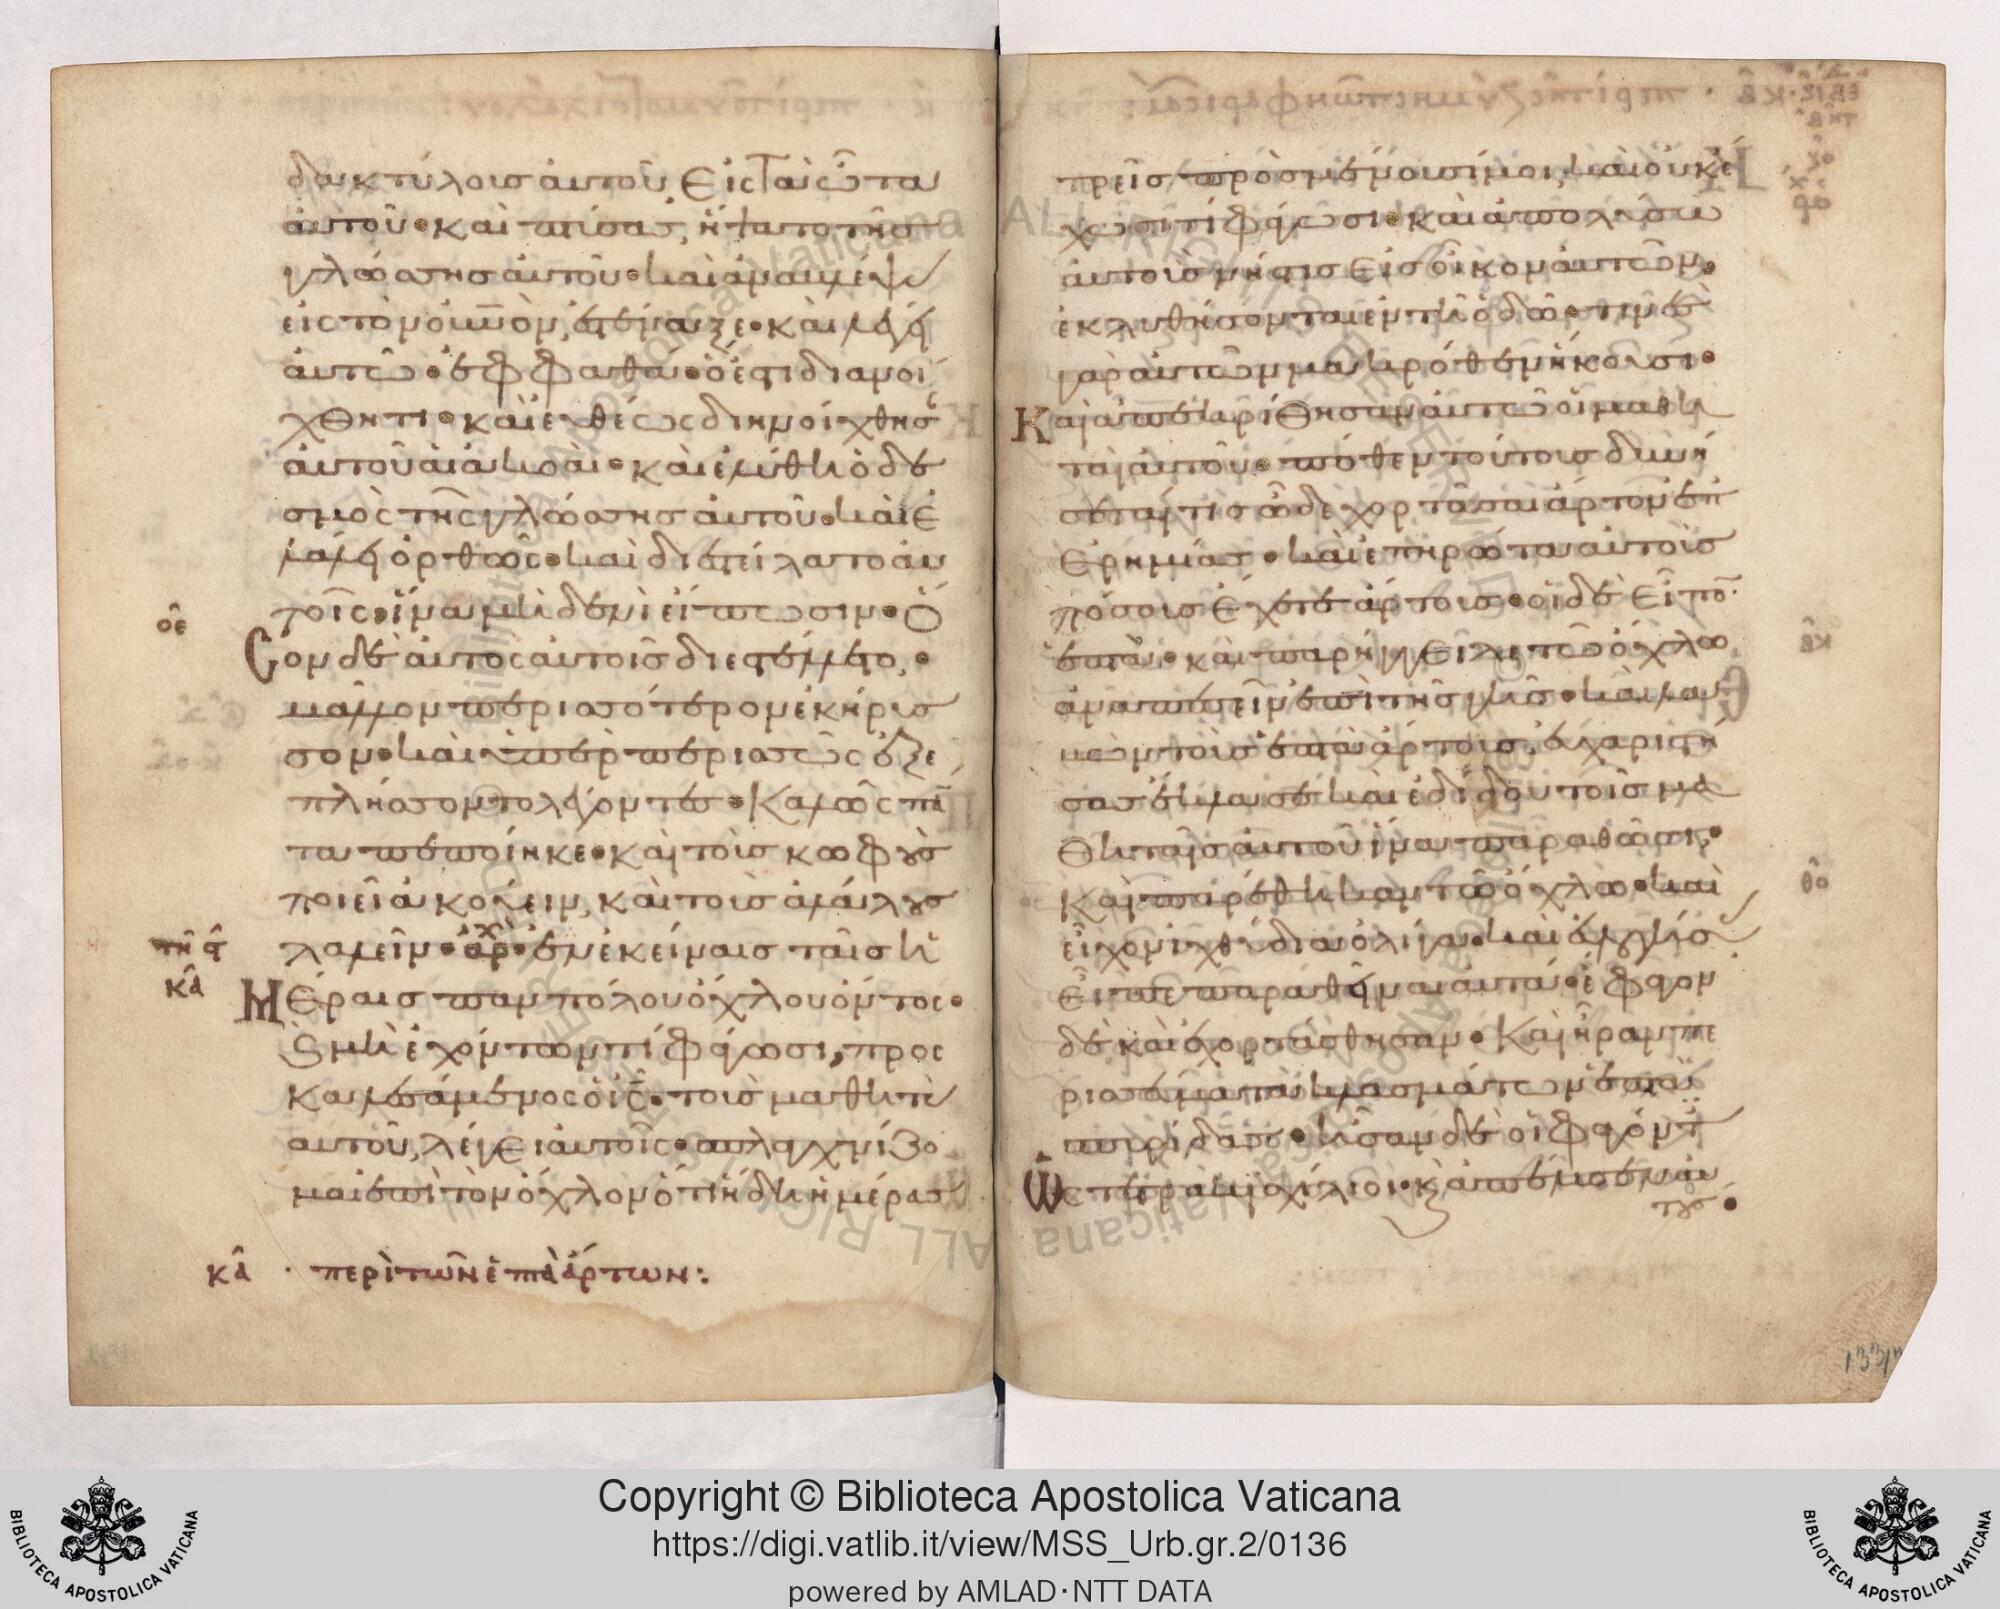 δακτύλους αὐτοῦ εἰς τὰ ὦτα
αὐτοῦ· καὶ πτύσας, ἥψατο τῆς
γλώσσης αὐτοῦ· καὶ ἀναβλέψας
εἰς τὸν οὐνον, ἐστέναξε· καὶ λέγει
αὐτῶ· ἐφφαθά· ὅ ἐστι διανοί
χθητι· καὶ εὐθέως διηνοίχθησαν
αὐτοῦ αἱ ἀκοαί· καὶ ἐλύθη ὁ δε
σμὸς τῆς γλώσσης αὐτοῦ· καὶ ἐ
λάλει ὀρθῶς· καὶ διεστείλατο αὐ
τοῖς, ἵνα μηδενὶ εἴπωσιν· ὅ
οε
σον δὲ αὐτὸς αὐτοῖς διεστέλλετο,
μᾶλλον περισσότερον ἐκήρυσ
σον· καὶ ὑπὲρ περισσῶς ἐξε
πλήσσοντο λέγοντες· Καλῶς πάν
τα πεποίηκε· καὶ τοὺς κωφοὺς
ποιεῖ ἀκούειν, καὶ τοὺς ἀλάλους
λαλεῖν· ἀρχ ἐν ἐκείναις ταῖς ἡ
κα
Μέραις παμπόλου ὄχλου ὄντος·
καὶ μὴ ἐχόντων τί φάγωσι, προσ
καλεσάμενος ὁ ις τοὺς μαθητὰς
αὐτοῦ, λέγει αὐτοῖς· σπλαγχνίζο
μαι ἐπὶ τὸν ὄχλον ὅτι ἤδη ἡμέρας
κα · περὶ τῶν ἑπτὰ ἄρτων:
τρεῖς προσμένουσί μοι, καὶ οὐκ ἔ
χουσι τί φάγωσι· καὶ ἀπολύσω
αὐτοὺς νήστις εἰς οἶκον αὐτῶν,
ἐκλυθήσονται ἐν τῆ ὁδῶ· τινὲς
γὰρ αὐτῶν μακρόθεν ἥκουσι·
Καὶ ἀπεκρίθησαν αὐτῶ οἱ μαθη
ταὶ αὐτοῦ· πόθεν τούτους δυνή
σεταί τις ὧδε χορτάσαι ἄρτων ἐπ
ἐρημίας· καὶ ἐπηρώτα αὐτοὺς
πόσους ἔχετε ἄρτους· οἱ δὲ εἶπον
ἑπτά· καὶ παρήγγειλε τῶ ὄχλω
ἀναπεσεῖν ἐπὶ τῆς γῆς· καὶ λαβὼν
τοὺς ἑπτὰ ἄρτους, εὐχαριστή
σας ἔκλασε καὶ ἐδίδου τοῖς μα
θηταῖς αὐτοῦ ἵνα παραθῶσι,
Καὶ παρέθηκαν τῶ ὄχλω· καὶ
εἶχον ἰχθύδια ὀλίγα· καὶ εὐλογήσας
εἶπε παραθεῖναι αὐτά· ἔφαγον
δὲ καὶ ἐχορτάσθησαν· Καὶ ἦραν πε
ρισσεύματα κλασμάτων ἑπτὰ
σπυρίδας· ἦσαν δὲ οἱ φαγόντες
ὡς τετρακισχίλιοι· καὶ ἀπέλυσεν αὐ
τούς·